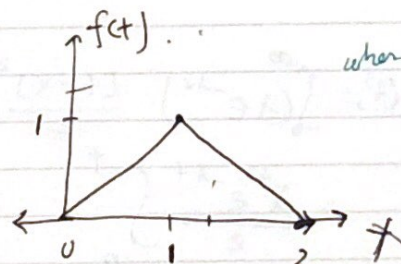 f(t)
when
1
0 1 2 t